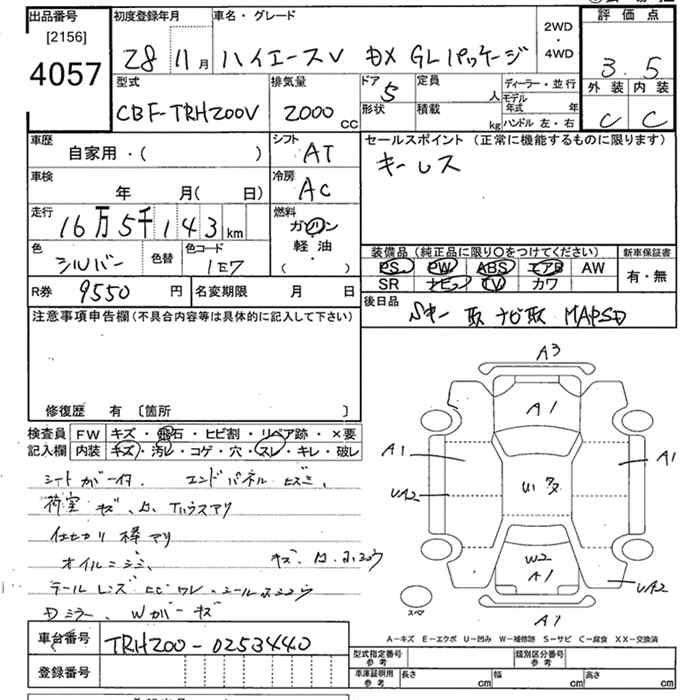 出品番号 初度登録年月 車名・グレード 2WD・4WD 評価点
[2156]
4057 28 11月 ハイエースV DX GLパッケージ 3.5
型式 排気量 ドア 定員 人 ディーラー・並行 外装 内装
CBF-TRH200V 2000cc 5 形状 積載 kg モデル年式 年 C C
ハンドル 左・右
車歴 シフト セールスポイント (正常に機能するものに限ります)
自家用・( ) AT キーレス
車検 年 月( 日) 冷房 AC
走行 16万5千143km 燃料 ガソリン 軽油・( )
色 シルバー 色替 色コード 1E7
装備品 (純正品に限り〇をつけてください) 新車保証書
PS PW ABS エアB AW 有・無
SR ナビ TV カワ
R券 9550円 名変期限 月 日
後日品 Sキー 取 ナビ取 MAPSD
注意事項申告欄(不具合内容等は具体的に記入して下さい)
修復歴 有 〔箇所 〕
検査員 FW キズ・飛石・ヒビ割・リペア跡・×要
記入欄 内装 キズ・汚レ・コゲ・穴・スレ・キレ・破レ
シート ガ 付 エンドパネル
荷室 キズ、 アリ
仕切り 棒 アリ
オイルニジミ キズ
テールレンズ ワレ、シール
Dミラー、Wカバー キズ
A3
A1
A1 A1
UA2 U1多
W2
A1
UA2
スペ
A1
A-キズ E-エクボ U-凹み W-補修跡 S-サビ C-腐食 XX-交換済
車台番号 TRH200-0253440
型式指定番号 参考 類別区分番号 参考
登録番号 車庫証明用 参考 長さ cm 幅 cm 高さ cm